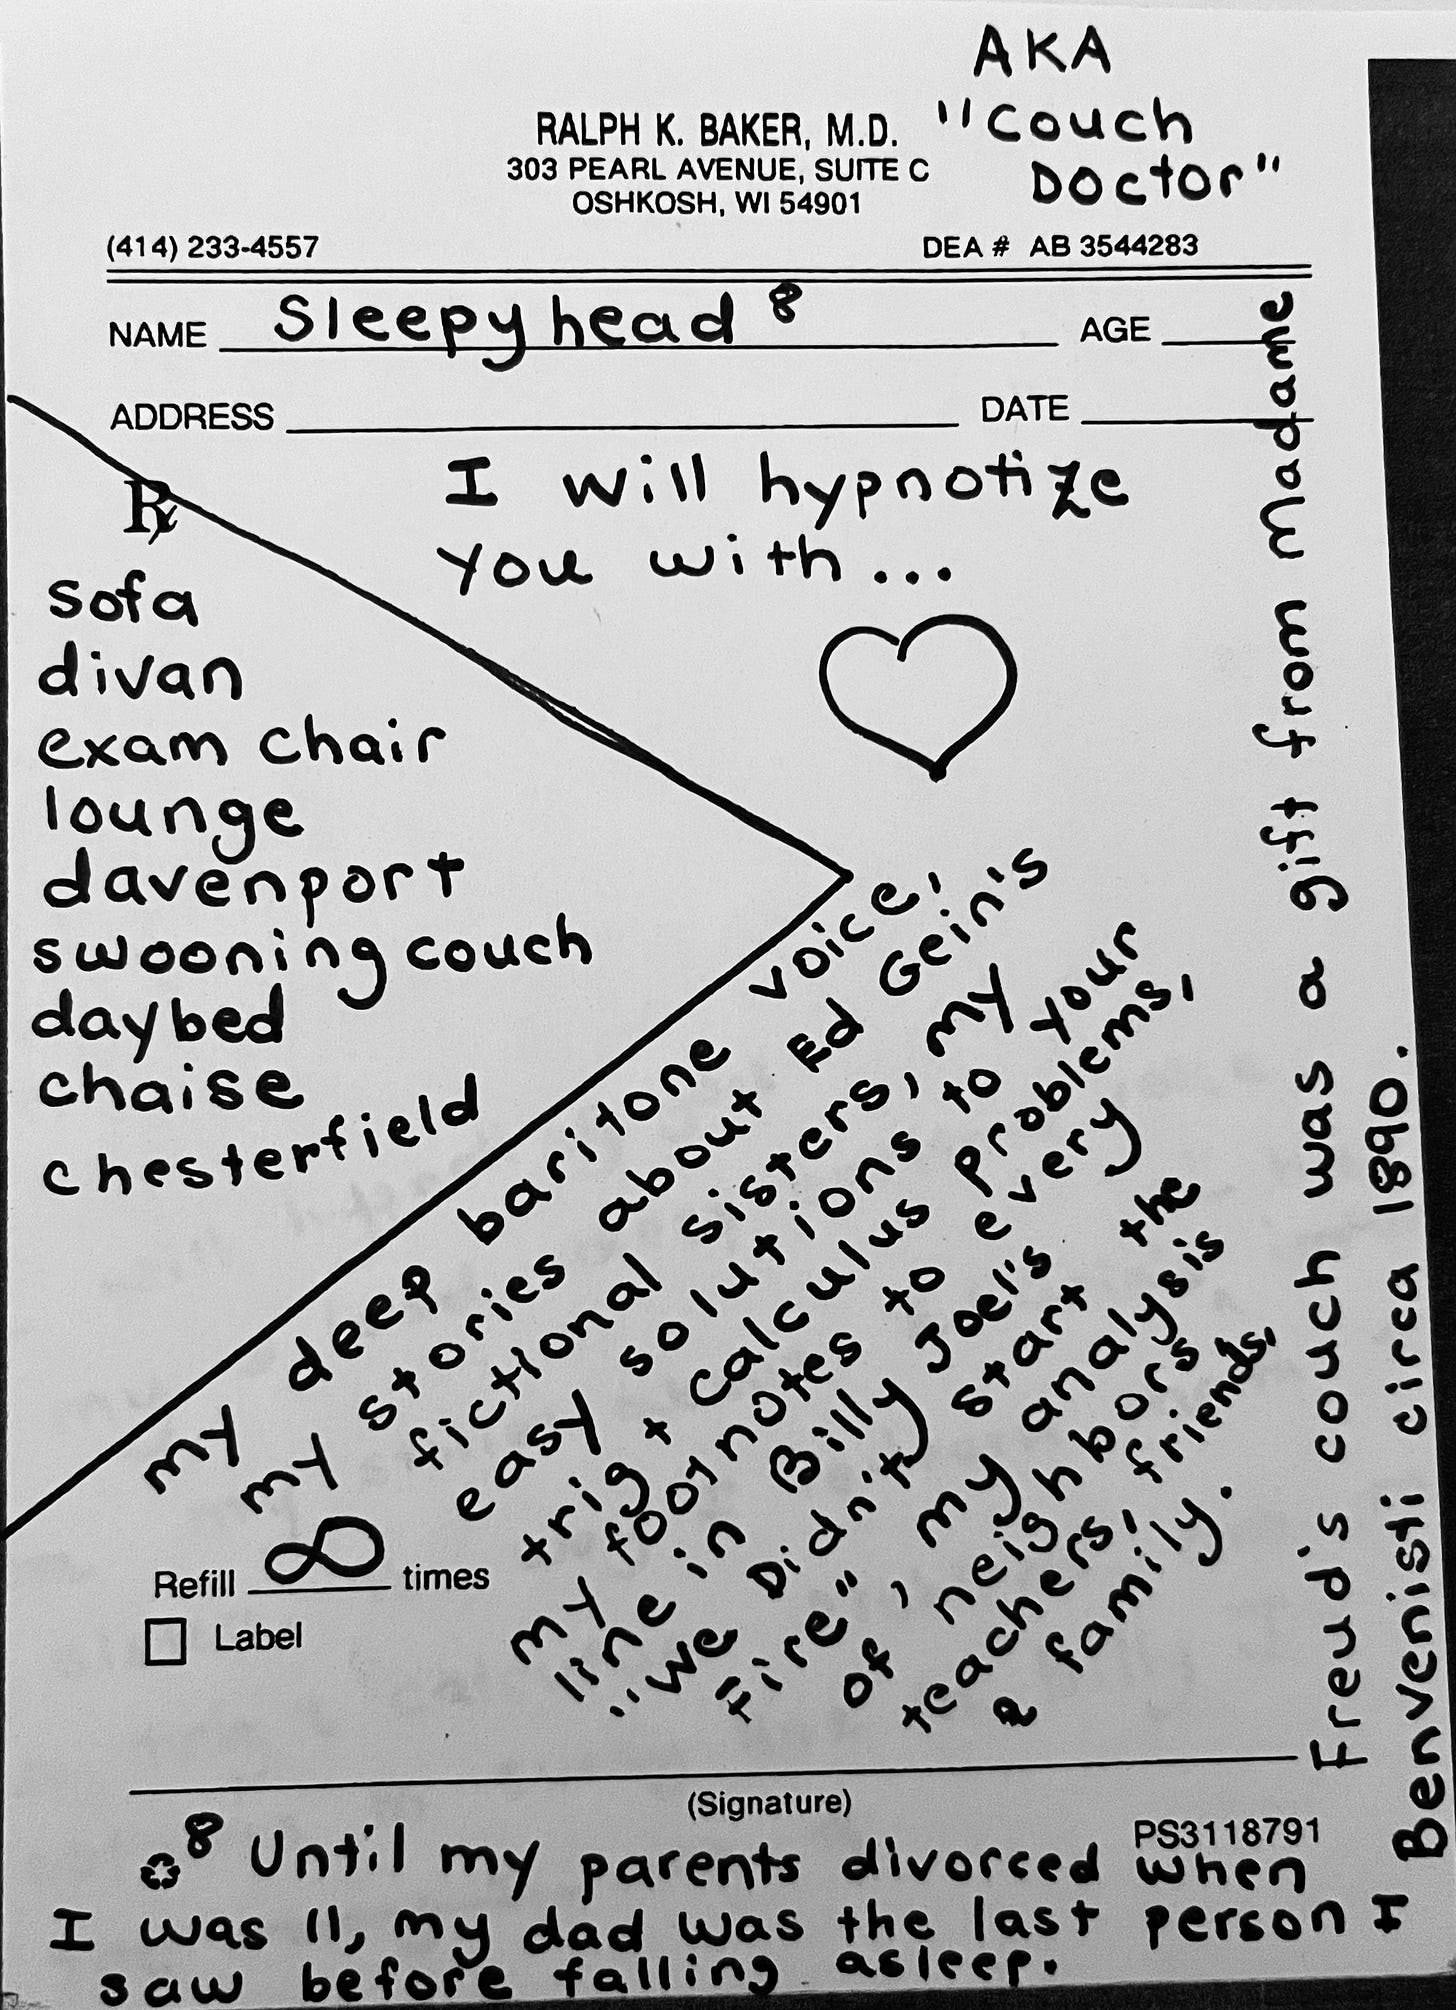 AKA
"Couch
Doctor"
RALPH K. BAKER, M.D.
303 PEARL AVENUE, SUITE C
OSHKOSH, WI 54901
(414) 233-4557 DEA # AB 3544283
NAME Sleepyhead 8 AGE
ADDRESS DATE
Rx
I will hypnotize
you with...
sofa
divan
exam chair
lounge
davenport
swooning couch
daybed
chaise
chesterfield
my deep baritone voice,
my stories about Ed Gein's
fictional sisters, my
easy solutions to your
trig + calculus problems,
my footnotes to every
line in Billy Joel's
"We Didn't start the
Fire", my analysis
of neighbors
teachers, friends,
& family.
Refill ∞ times
Label
(Signature)
PS3118791
8 Until my parents divorced when
I was 11, my dad was the last person I
saw before falling asleep.
Freud's couch was a gift from madame
Benvenisti circa 1890.